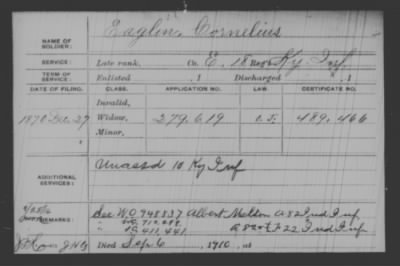 NAME OF SOLDIER: Eaglin, Cornelius
SERVICE: Late rank, Co. E, 18 Reg't Ky Inf
TERM OF SERVICE: Enlisted , 1 Discharged , 1
DATE OF FILING. CLASS. APPLICATION NO. LAW. CERTIFICATE NO.
Invalid,
1879 Dec 29 Widow, 279.619 489.466
Minor,
ADDITIONAL SERVICES: Unassd 10 Ky Inf
REMARKS: See W.O 748837 Albert Melton A 82 Ind Inf
22 Ind Inf
Died Sep 6 , 1910, at